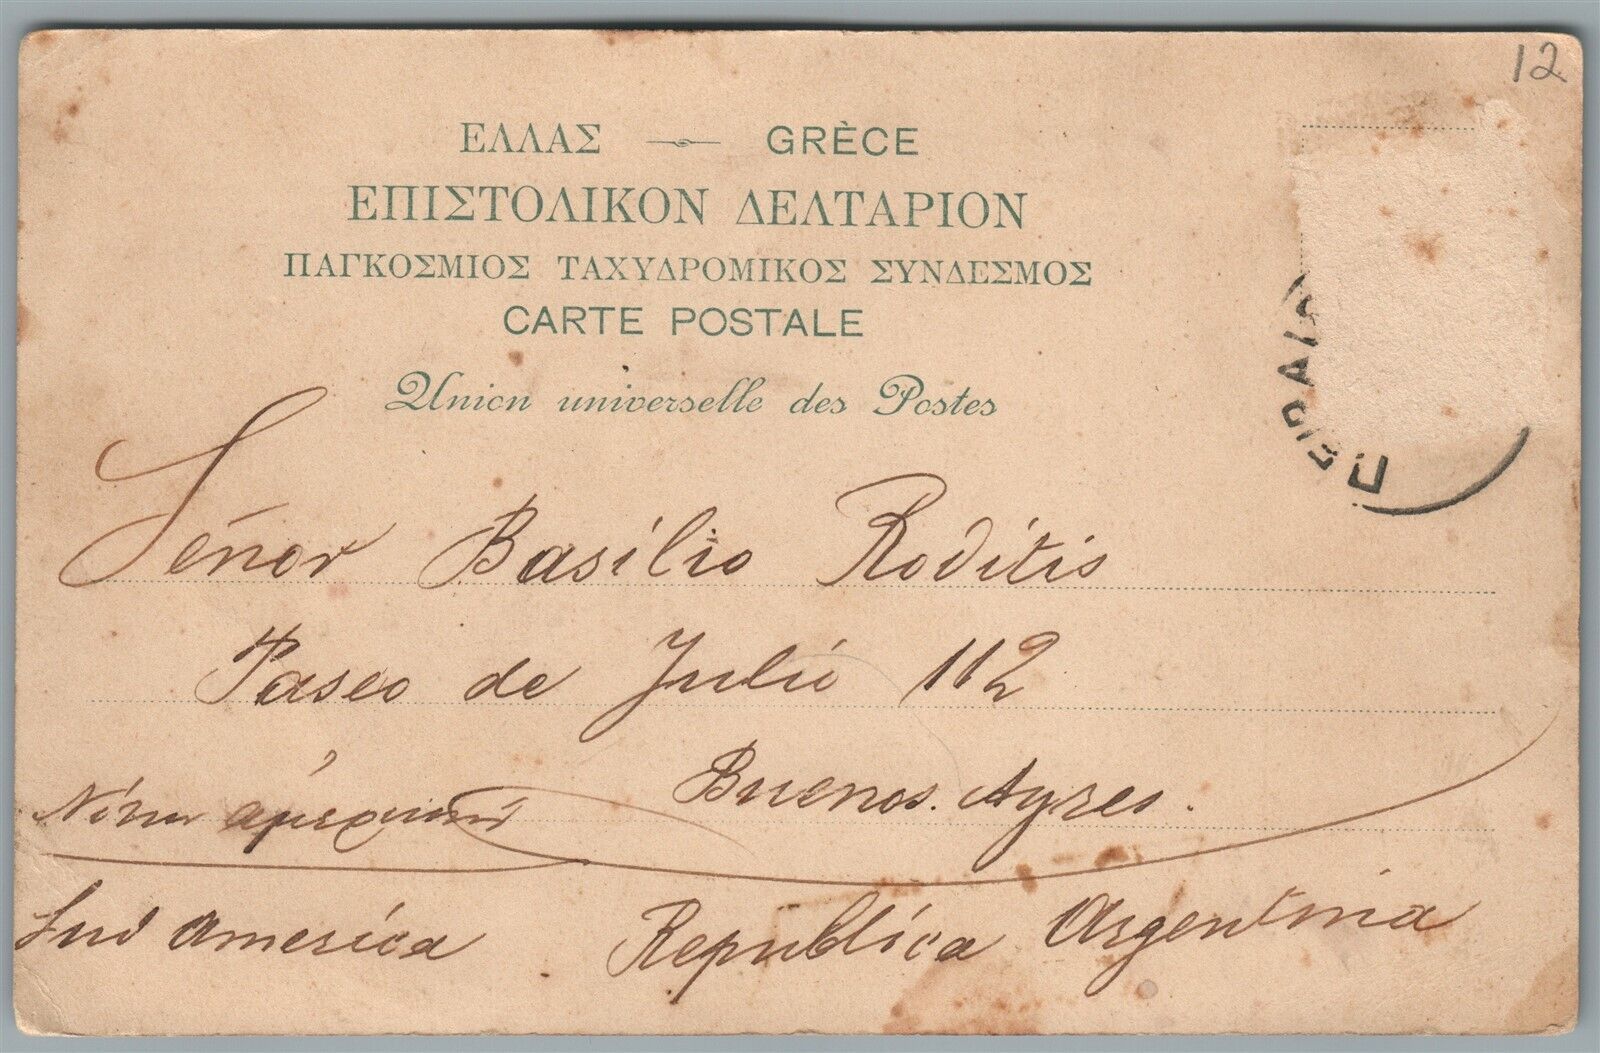 12
ΕΛΛΑΣ — GRÈCE
ΕΠΙΣΤΟΛΙΚΟΝ ΔΕΛΤΑΡΙΟΝ
ΠΑΓΚΟΣΜΙΟΣ ΤΑΧΥΔΡΟΜΙΚΟΣ ΣΥΝΔΕΣΜΟΣ
CARTE POSTALE
Union universelle des Postes
ΠΕΙΡΑΙΕ
Señor Basílio Rodítis
Paseo de Julió 112
Buenos. Ayres.
Νότιον αμερικήν
Sud America República Argentina